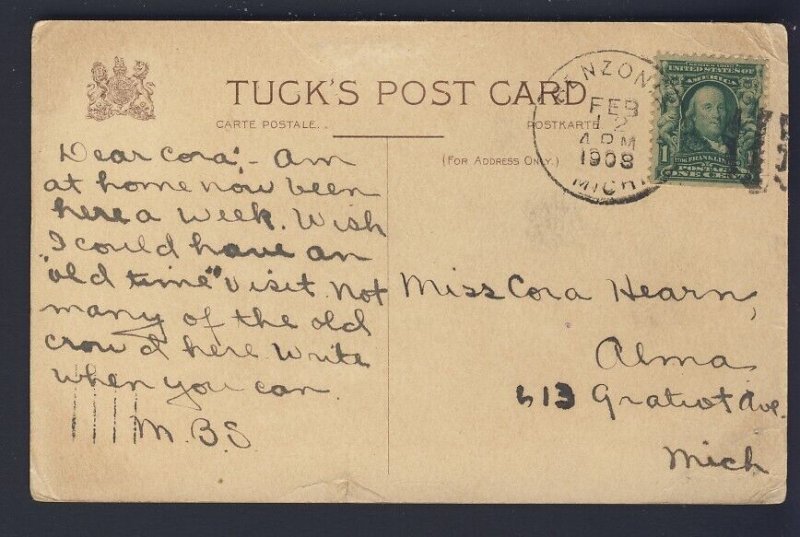 TUCK'S POST CARD
CARTE POSTALE..
POSTKARTE
(FOR ADDRESS ONLY.)
FEB
12
4 PM
1908
MICH.
UNITED STATES OF
AMERICA
1
FRANKLIN
POSTAGE
ONE CENT
Dear Cora: - Am
at home now been
here a week. Wish
I could have an
"old time" visit. Not
many of the old
crowd here. Write
when you can.
M.B.S.
Miss Cora Hearn,
Alma
613 Gratiot Ave.
Mich